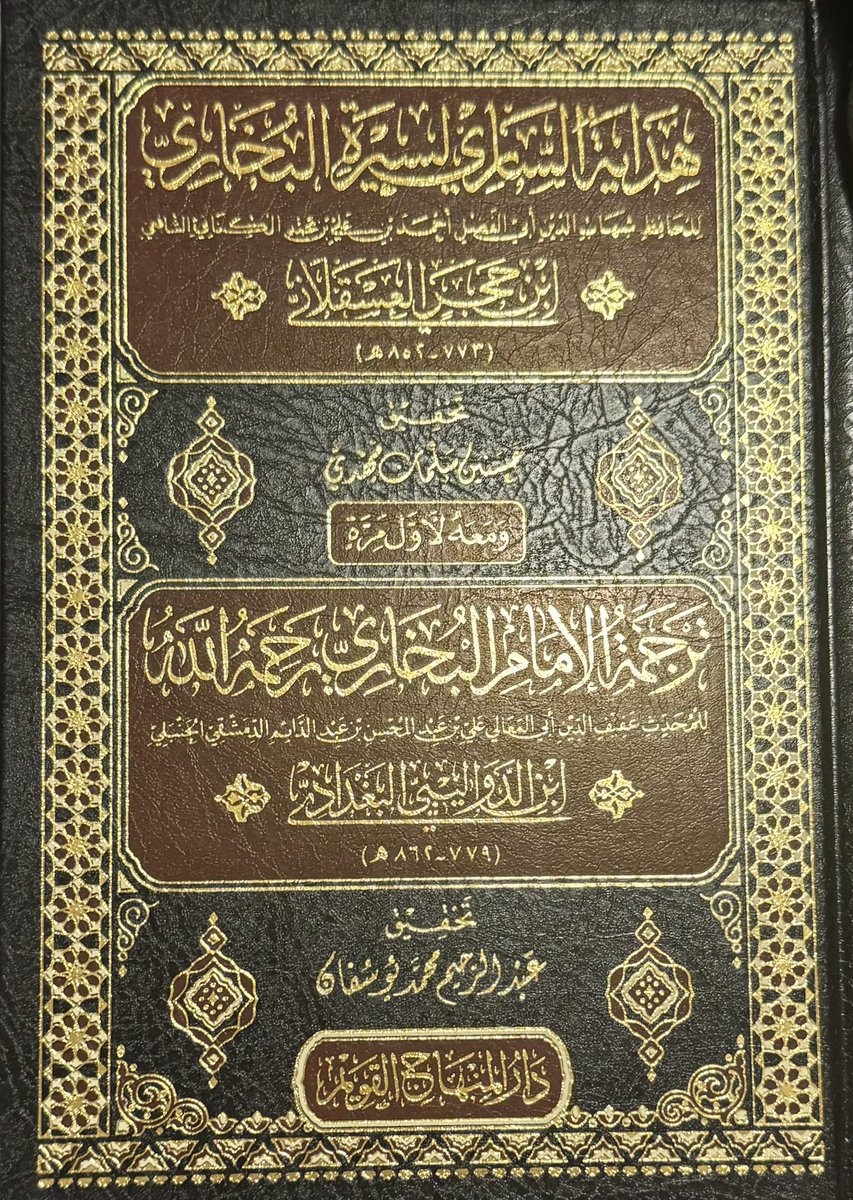 هِدَايَةُ السَّارِي لِسِيرَةِ البُخَارِيِّ
لِلحَافِظِ شِهَابِ الدِّينِ أَبِي الفَضْلِ أَحْمَدَ بْنِ عَلِيِّ بْنِ مُحَمَّدٍ الكِنَانِيِّ الشَّافِعِيِّ
ابْنِ حَجَرٍ العَسْقَلَانِيِّ
(٧٧٣-٨٥٢هـ)
تَحْقِيق
حسين سلمان مهدي
وَمَعَهُ لِأَوَّلِ مَرَّةٍ
تَرْجَمَةُ الإِمَامِ البُخَارِيِّ رَحِمَهُ اللَّهُ
لِلمُحَدِّثِ عَفِيفِ الدِّينِ أَبِي المَعَالِي عَلِيِّ بْنِ عَبْدِ المُحْسِنِ بْنِ عَبْدِ الدَّائِمِ الدِّمَشْقِيِّ الحَنْبَلِيِّ
ابْنِ الدَّوَالِيبِيِّ البَغْدَادِيِّ
(٧٧٩-٨٦٢هـ)
تَحْقِيق
عبد الرحيم محمد يوسفان
دَارُ المِنْهَاجِ القَوِيمِ